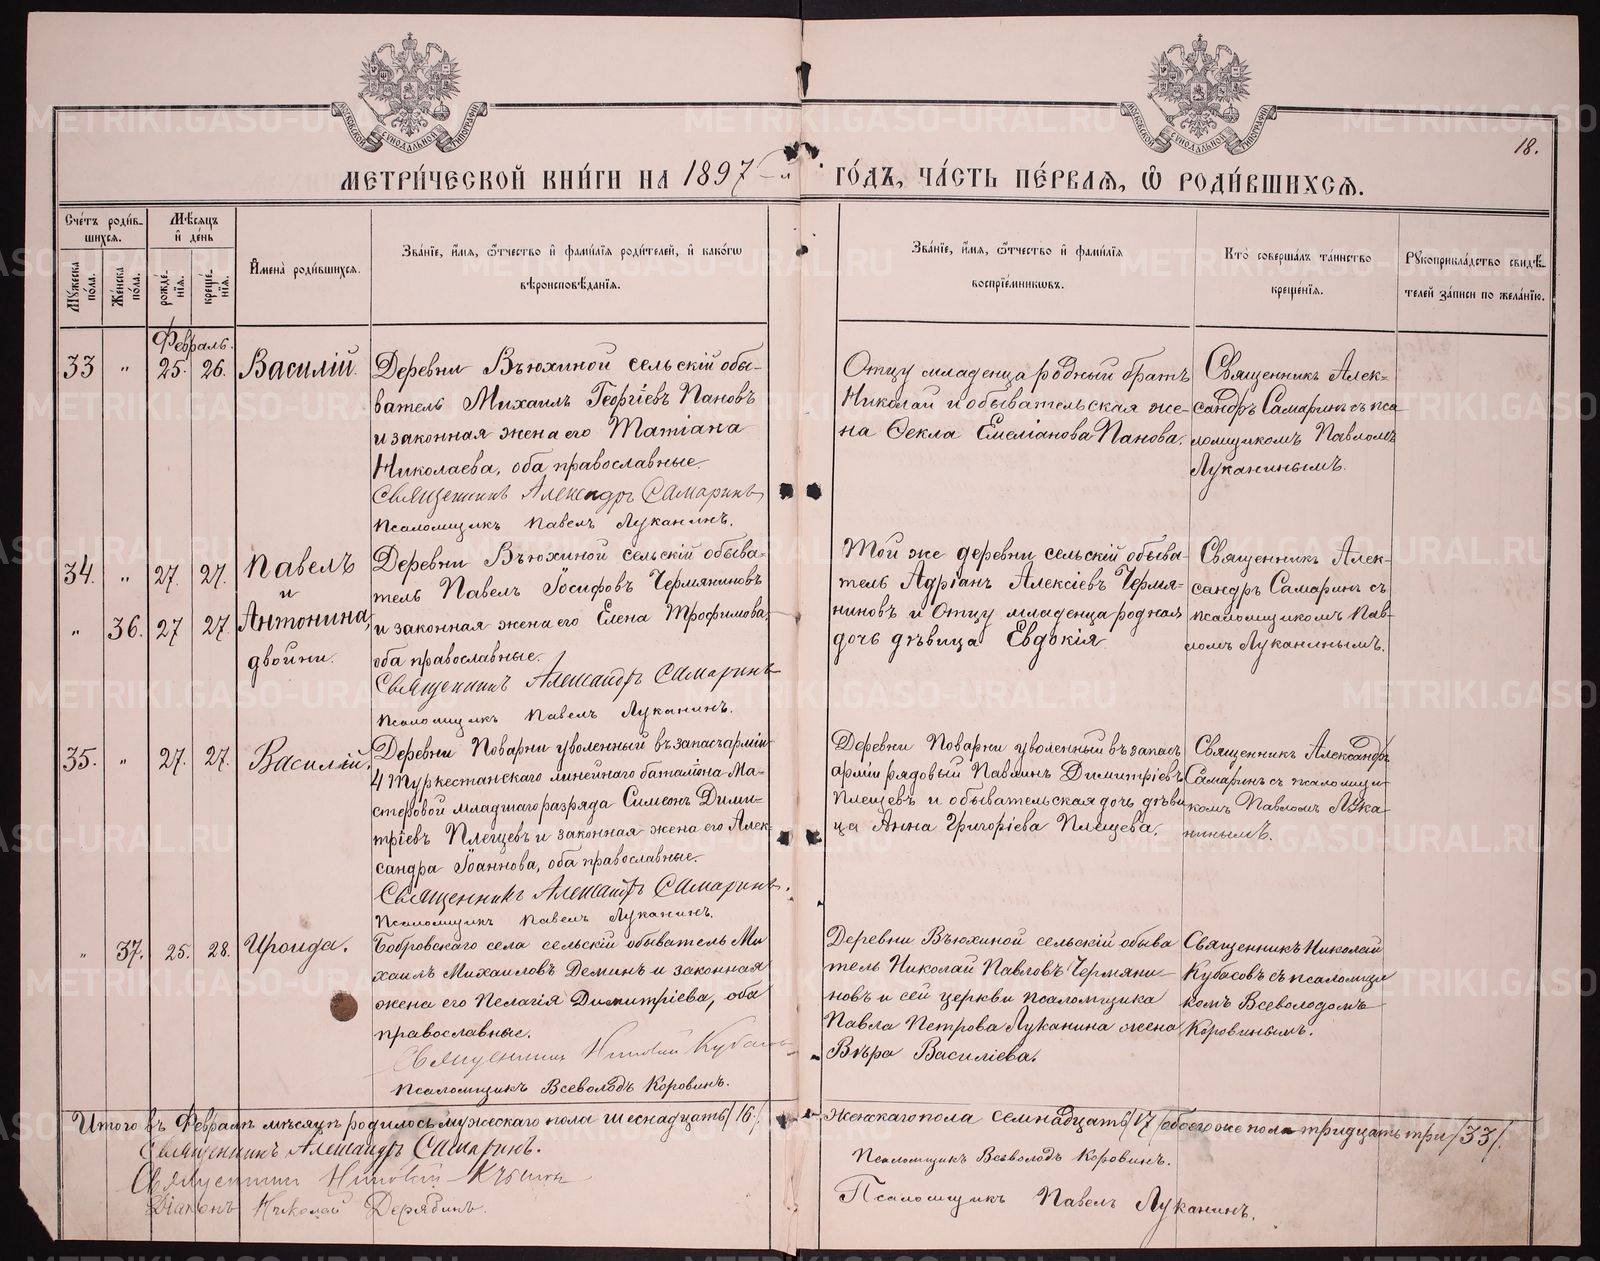 18.
МЕТРИ́ЧЕСКОЙ КНИ́ГИ НА 1897-й ГО́ДЪ, ЧА́СТЬ ПЕ́РВАѦ, Ѿ РОДИ́ВШИХСѦ.
Сче́тъ роди́вшихсѧ.
Мꙋ́жеска по́ла.
Же́нска по́ла.
Мѣ́сѧцъ и҆ де́нь
рожде́нїѧ.
креще́нїѧ.
И҆мена̀ роди́вшихсѧ.
Зва́нїе, и҆́мѧ, ѻ҆́тчество и҆ фами́лїѧ роди́телей, и҆ како́гѡ
вѣроисповѣ́данїѧ.
Зва́нїе, и҆́мѧ, ѻ҆́тчество и҆ фами́лїѧ
воспрїе́мникѡвъ.
Кто̀ соверша́лъ та́инство
креще́нїѧ.
Рꙋкоприкла́дство свидѣ́-
телей за́писи по жела́нїю.
Февраль.
33 " 25. 26. Василій.
Деревни Вьюхиной сельскій обы-
ватель Михаилъ Георгіевъ Пановъ
и законная жена его Татіана
Николаева, оба православные.
Священникъ Александръ Самаринъ
Псаломщикъ Павелъ Луканинъ.
Отцу младенца родный братъ
Николай и обывательская же-
на Ѳекла Емеліанова Панова.
Священникъ Алек-
сандръ Самаринъ съ пса
ломщикомъ Павломъ
Луканинымъ.
34. " 27. 27. Павелъ
и
" 36. 27 27 Антонина,
двойни.
Деревни Вьюхиной сельскій обыва-
тель Павелъ Іосифовъ Чермяниновъ
и законная жена его Елена Трофимова,
оба православные.
Священникъ Александръ Самаринъ
Псаломщикъ Павелъ Луканинъ.
Той же деревни сельскій обыва-
тель Адріанъ Алексіевъ Чермя-
ниновъ и Отцу младенца родная
дочь дѣвица Евдокія
Священникъ Алек-
сандръ Самаринъ съ
псаломщикомъ Пав-
ломъ Луканинымъ.
35. " 27. 27. Василій.
Деревни Поварни уволенный въ запасъ арміи
4 Туркестанскаго линейнаго баталіона Ма-
стеровой младшаго разряда Симеонъ Дими-
тріевъ Плещевъ и законная жена его Алек-
сандра Іоаннова, оба православные.
Священникъ Александръ Самаринъ.
Псаломщикъ Павелъ Луканинъ.
Деревни Поварни уволенный въ запасъ
арміи рядовый Павлинъ Димитріевъ
Плещевъ и обывательская дочь дѣви
ца Анна Григоріева Плещева.
Священникъ Александръ
Самаринъ съ псаломщи
комъ Павломъ Лука-
нинымъ.
" 37. 25. 28. Ироида.
Бобровскаго села сельскій обыватель Ми
хаилъ Михаиловъ Деминъ и законная
жена его Пелагія Димитріева, оба
православные.
Священникъ Николай Кубасовъ
Псаломщикъ Всеволодъ Коровинъ.
Деревни Вьюхиной сельскій обыва
тель Николай Павловъ Чермяни
новъ и сей церкви псаломщика
Павла Петрова Луканина жена
Вѣра Василіева.
Священникъ Николай
Кубасовъ съ псаломщи
комъ Всеволодомъ
Коровинымъ.
Итого въ Февралѣ мѣсяцѣ родилось мужескаго пола шеснадцать /16/, женскаго пола семнадцать /17/ обоего же пола тридцать три /33/.
Священникъ Александръ Самаринъ.
Священникъ Николай
Діаконъ Николай Дерябинъ.
Псаломщикъ Всеволодъ Коровинъ.
Псаломщикъ Павелъ Луканинъ.
METRIKI.GASO-URAL.RU